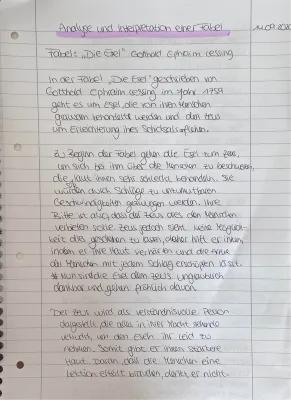 Analyse und Interpretation einer Fabel
Fabel: "Die Esel" Gotthold Ephraim Lessing
In der Fabel "Die Esel" geschrieben von
Gotthold Ephraim Lessing im Jahr 1759
geht es um Esel, die von ihren Menschen
grausam behandelt werden und den Zeus
um Erleichterung ihres Schicksals
Zu Beginn der Fabel gehen die Esel zum Zeus,
um sich bei ihm über die Menschen zu beschweren,
die, laut ihnen sehr schlecht behandeln. Sie
würden durch Schläge zu unzumutbaren
Geschwindigkeiten gezwungen werden. Ihre
Bitte ist also, dass der Zeus dies den Menschen
verbieten solle. Zeus jedoch sieht keine Möglich-
keit dies geschehen zu lassen, daher hilft er ihnen,
indem er ihre Haut verhärten und die Arme
der Menschen mit jedem Schlag erschöpfen lässt.
Nun sind die Esel dem Zeus unglaublich
dankbar und gehen fröhlich davon.
Der Zeus wird als verständnisvolle Person
dargestellt, die alles in ihrer Macht stehende
versucht, um den Eseln ihr Leid zu
nehmen. Somit gibt er ihnen stärkere
Haut. Daran, daß die Menschen eine
Lektion erteilt bräuchten, denkt er nicht.